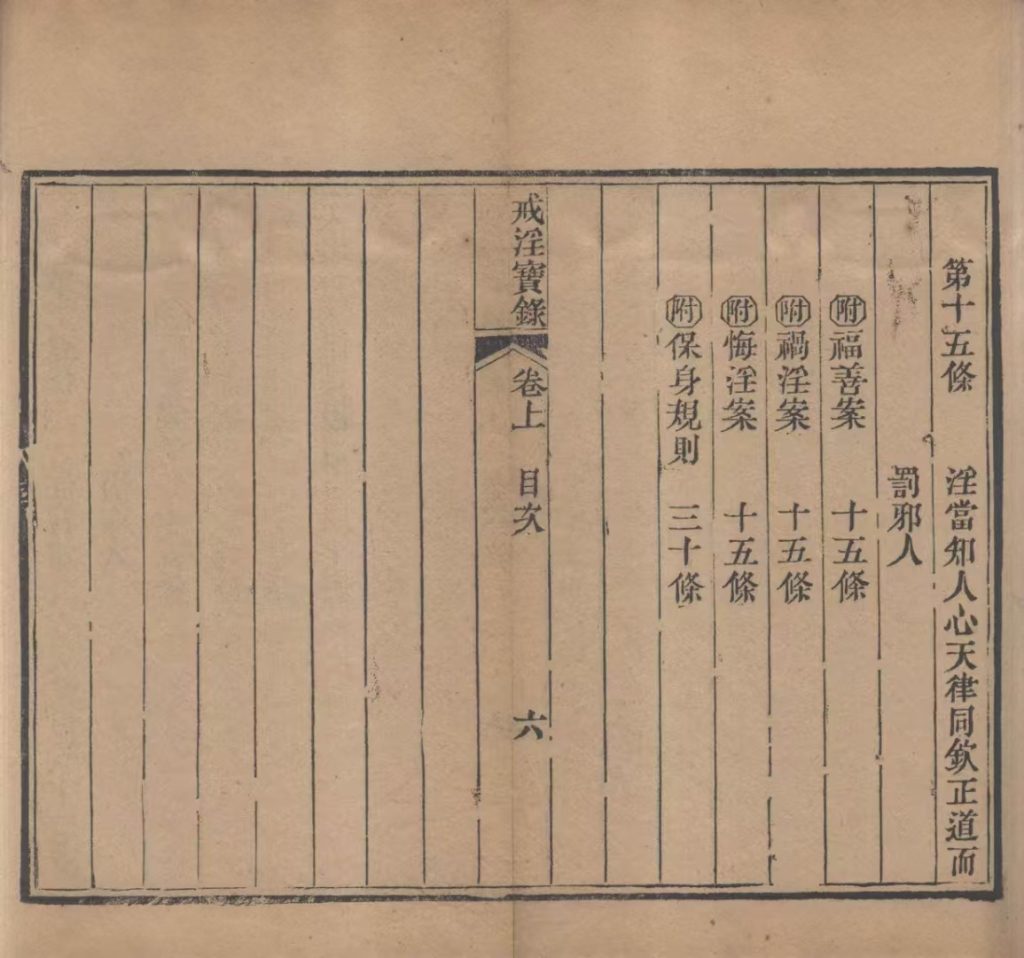 第十五條　淫當知人心天律同欽正道而
罰邪人
附福善案　十五條
附禍淫案　十五條
附悔淫案　十五條
附保身規則　三十條
戒淫寶錄　卷上　目次　六